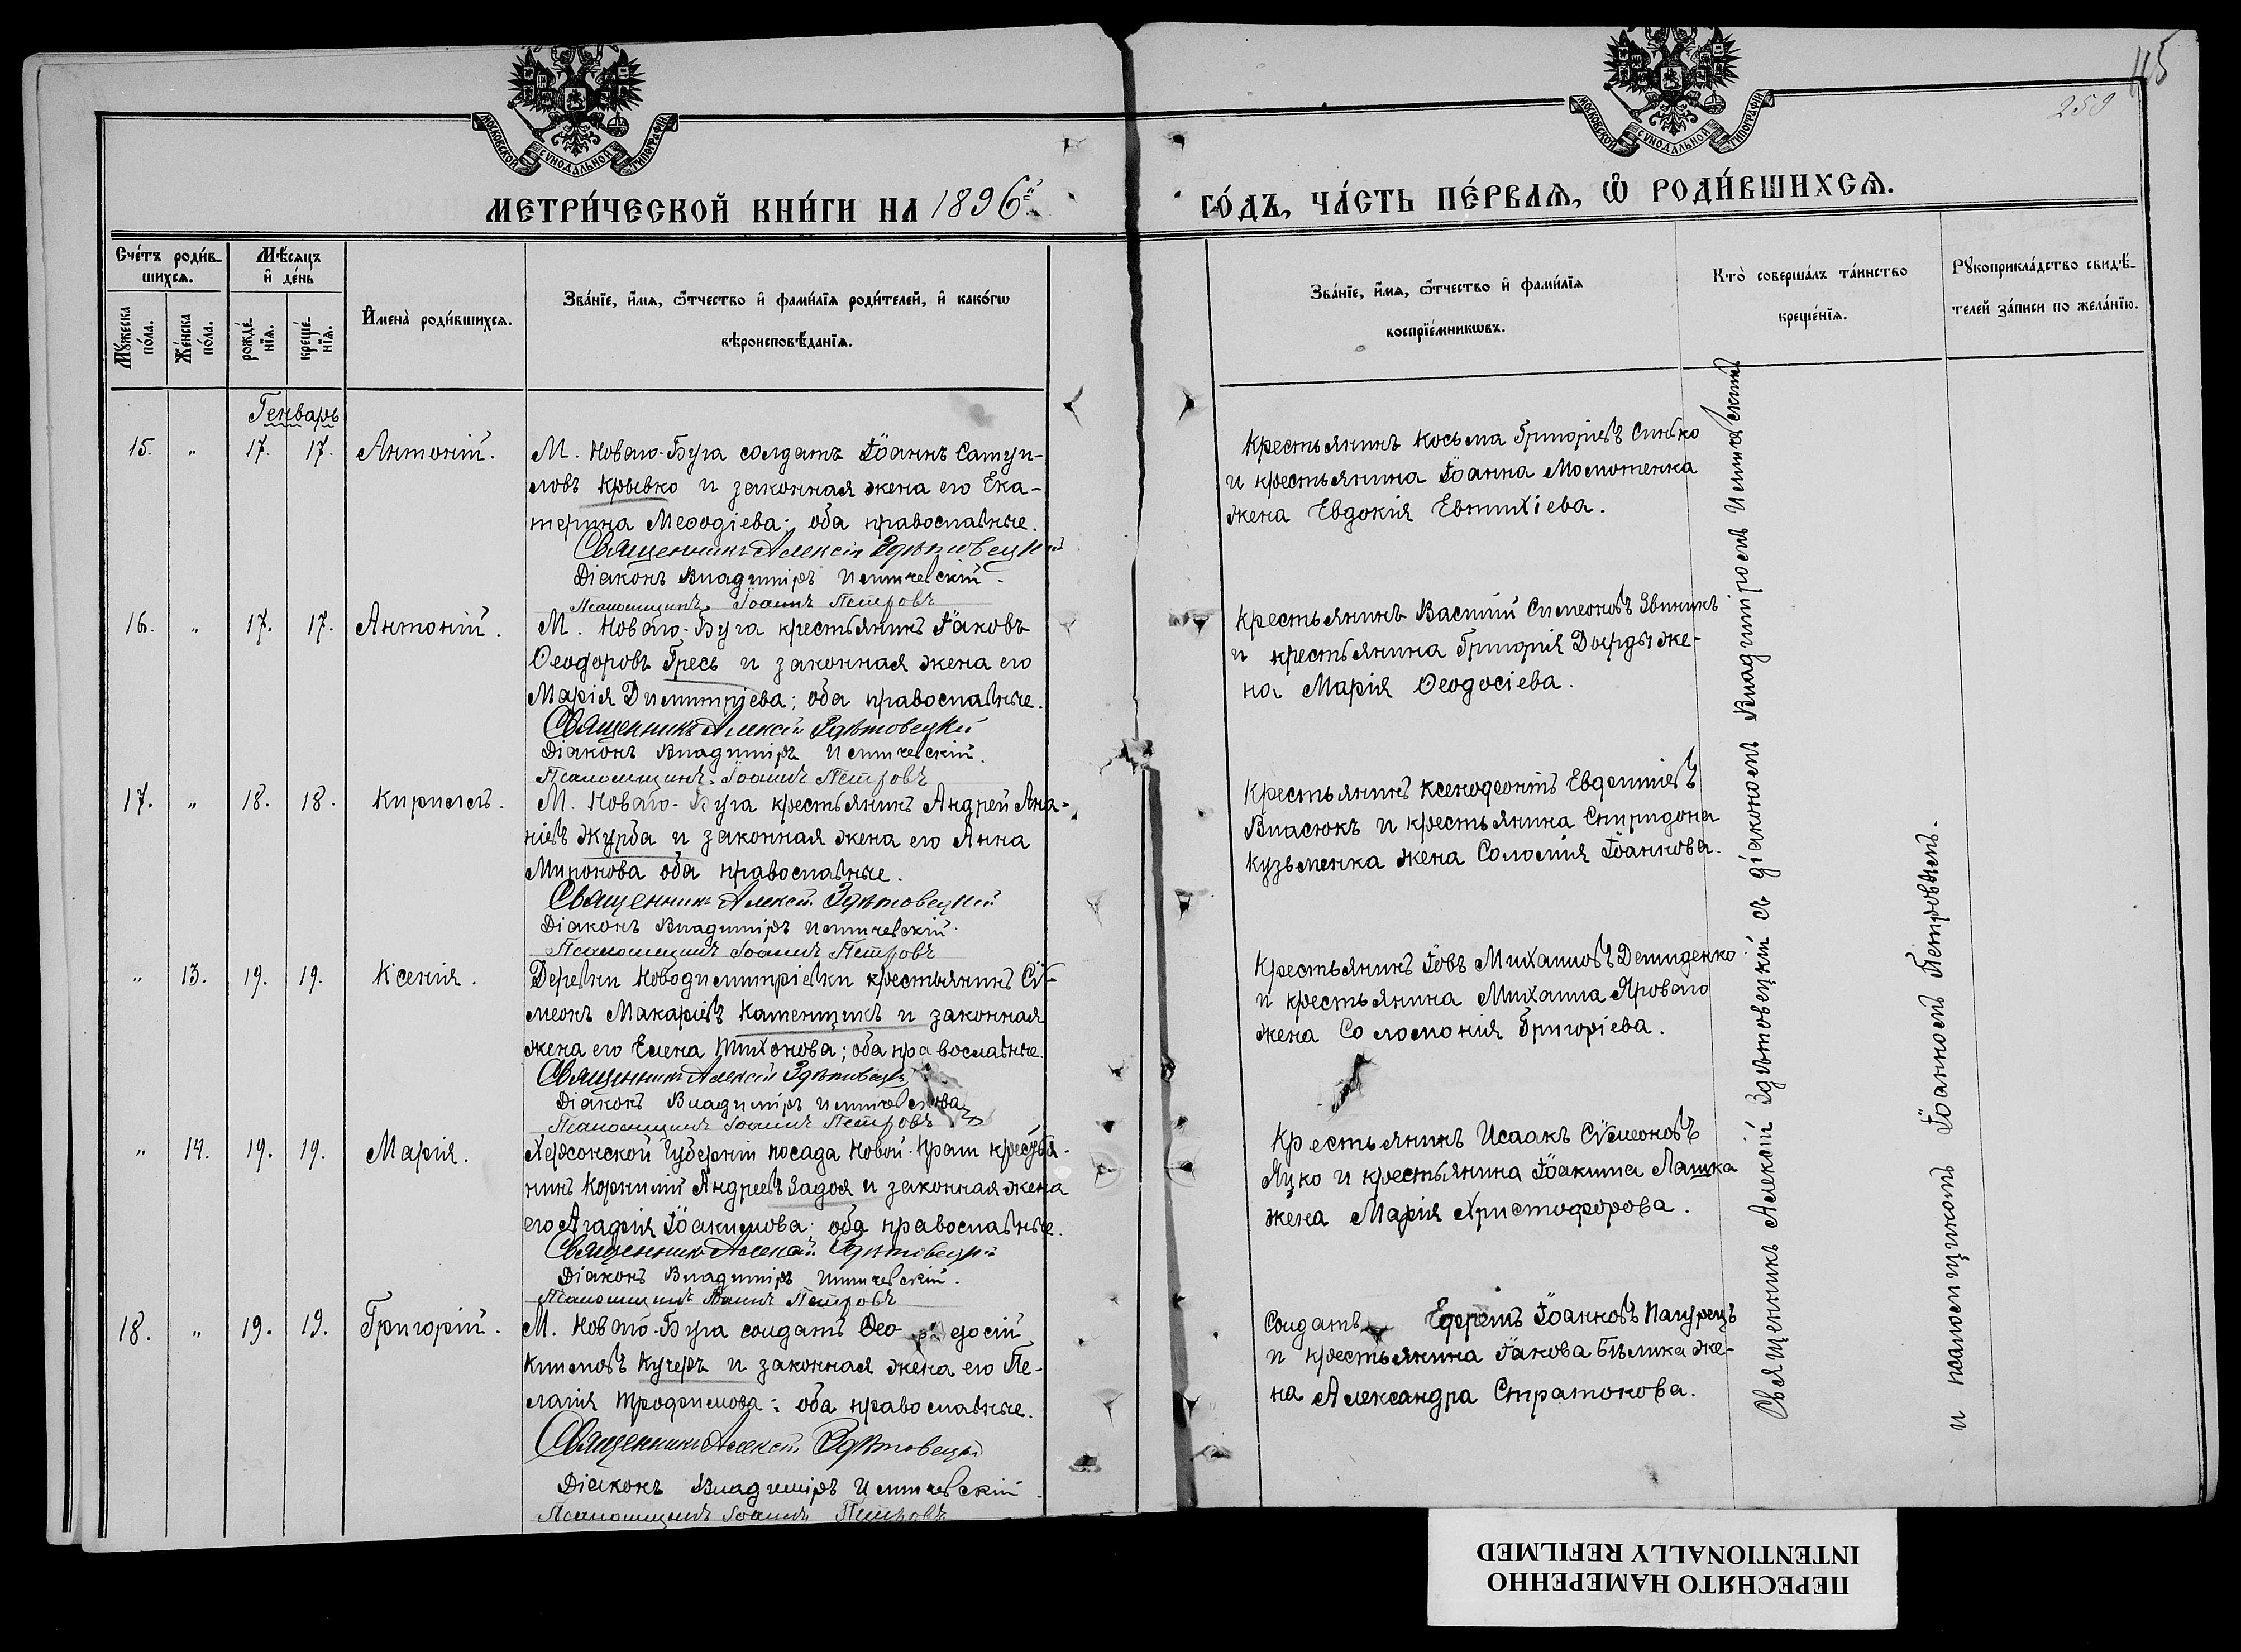 115
259
МОСКОВСКОЙ СѴНОДАЛЬНОЙ ТИПОГРАФІИ
МОСКОВСКОЙ СѴНОДАЛЬНОЙ ТИПОГРАФІИ
МЕТРИ́ЧЕСКОЙ КНИ́ГИ НА 1896й
ГО́ДЪ, ЧА́СТЬ ПЕ́РВАѦ, Ѡ РОДИ́ВШИХСѦ.
Сче́тъ роди́в-
шихсѧ.
Мꙋ́жеска по́ла.
Же́нска по́ла.
Мѣ́сѧцъ
и де́нь
рожде́-
нїѧ.
креще́-
нїѧ.
И́мена̀ роди́вшихсѧ.
Зва́нїе, и́мѧ, ѻ́тчество и фами́лїѧ роди́телей, и како́гѡ
вѣроисповѣ́данїѧ.
Зва́нїе, и́мѧ, ѻ́тчество и фами́лїѧ
воспрїе́мникѡвъ.
Кто̀ соверша́лъ та́инство
креще́нїѧ.
Рꙋкоприкла́дство свидѣ́-
телей за́писи по жела́нїю.
Генварь
15. " 17. 17. Антоній.
М. Новаго-Буга солдатъ Іоаннъ Самуи-
ловъ Крывко и законная жена его Ека-
терина Меѳодіева; оба православные.
Священникъ Алексій Здѣтовецкій
Діаконъ Владиміръ Иличевскій.
Псаломщикъ Іоаннъ Петровъ
Крестьянинъ Косьма Григорьевъ Синько
и крестьянина Іоанна Момотенка
жена Евдокія Евтихіева.
16. " 17. 17. Антоній.
М. Новаго-Буга крестьянинъ Іаковъ
Ѳеодоровъ Гресь и законная жена его
Марія Димитріева; оба православные.
Священникъ Алексій Здѣтовецкій
Діаконъ Владиміръ Иличевскій.
Псаломщикъ Іоаннъ Петровъ
Крестьянинъ Василій Симеоновъ Звиникъ
и крестьянина Григорія Доурды же-
на Марія Ѳеодосіева.
17. " 18. 18. Кириллъ.
М. Новаго-Буга крестьянинъ Андрей Ана-
ніевъ Журба и законная жена его Анна
Миронова оба православные.
Священникъ Алексій Здѣтовецкій
Діаконъ Владиміръ Иличевскій.
Псаломщикъ Іоаннъ Петровъ
Крестьянинъ Ксенофонтъ Евфиміевъ
Власюкъ и крестьянина Спиридона
Кузьменка жена Соломія Іоаннова.
" 13. 19. 19. Ксенія.
Деревни Новодимитріевки крестьянинъ Сѵ-
меонъ Макаріевъ Каменщикъ и законная
жена его Елена Тихонова; оба православные.
Священникъ Алексій Здѣтовецкій
Діаконъ Владиміръ
Псаломщикъ Іоаннъ Петровъ
Крестьянинъ Іовъ Михаиловъ Демиденко
и крестьянина Михаила Яроваго
жена Соломонія Григоріева.
" 14. 19. 19. Марія.
Херсонской Губерніи посада Новой-Праги крестья-
нинъ Корнилій Андреевъ Задоя и законная жена
его Агафія Іоакимова; оба православные.
Священникъ Алексій Здѣтовецкій
Діаконъ Владиміръ Иличевскій.
Псаломщикъ Іоаннъ Петровъ
Крестьянинъ Исаакъ Сѵмеоновъ
Яцко и крестьянина Іоакима Лашка
жена Марія Христофорова.
18. " 19. 19. Григорій.
М. Новаго-Буга солдатъ Ѳео- досій
Климовъ Кучеръ и законная жена его Пе-
лагія Трофимова; оба православные.
Священникъ Алексій Здѣтовецкій
Діаконъ Владиміръ Иличевскій.
Псаломщикъ Іоаннъ Петровъ
Солдатъ Ефремъ Іоанновъ Пагурецъ
и крестьянина Іакова Бѣлика же-
на Александра Стратонова.
Священникъ Алексій Здѣтовецкій съ діакономъ Владиміромъ Иличевскимъ
и псаломщикомъ Іоанномъ Петровымъ.
ПЕРЕСНЯТО НАМЕРЕННО
INTENTIONALLY REFILMED